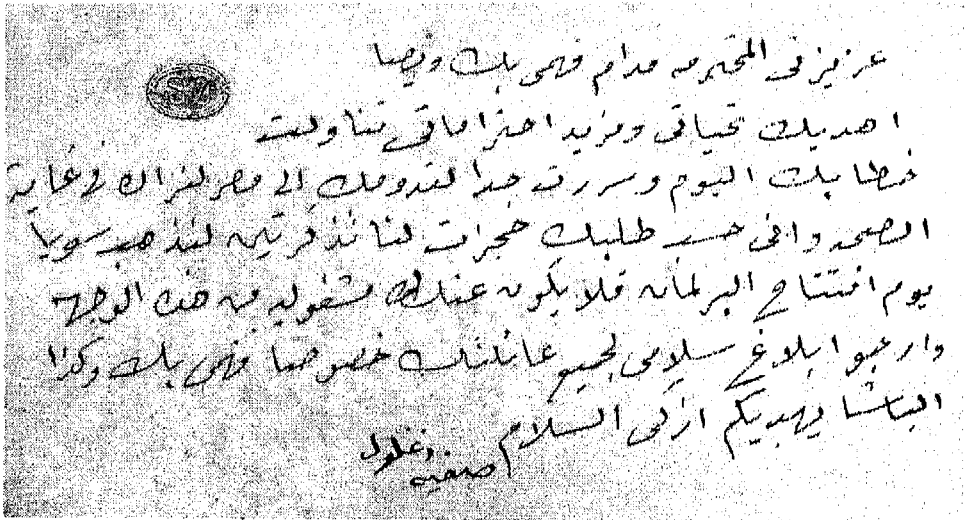 عزيزتى المحترمه مدام فهمى بك ويصا
اهديك تحياتى ومزيد احتراماتى تناولت
خطابك اليوم وسررت جدا لقدومك الى مصر لنراك فى غاية
الصحه وانى حسب طلبك حجزت لنا تذكرتين لنذهب سويا
يوم افتتاح البرلمان فلا يكون عندك مشغوليه من هذه الوجهه
وارجو ابلاغ سلامى لجميع عائلتك خصوصا فهمى بك وكذا
الباشا يهديكم ازكى السلام
صفيه زغلول